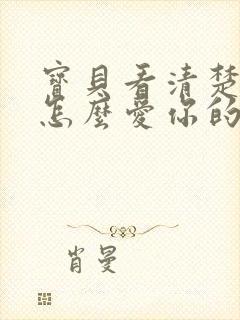 寶貝看清楚
怎麼愛你的
肖曼